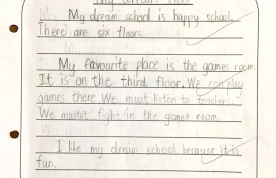 My dream school
My dream school is happy school.
There are six floors.
My favourite place is the games room.
It is on the third floor. We can play
games there We must listen to teachers.
We mustn't fight in the games room.
I like my dream school because it is
fun.